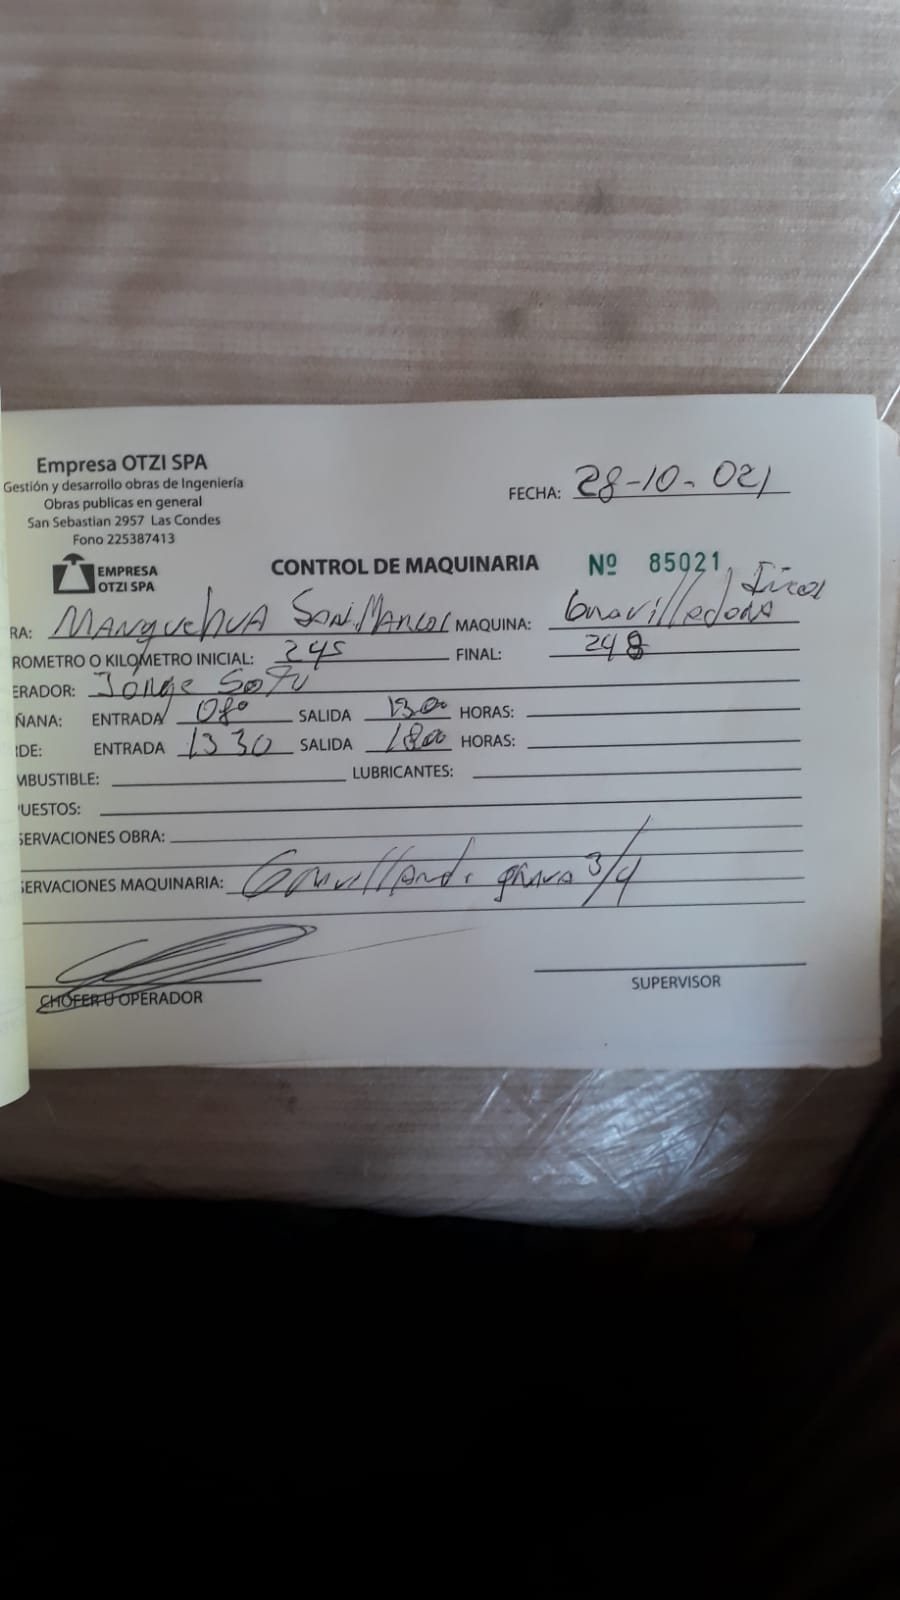 Empresa OTZI SPA
Gestión y desarrollo obras de Ingeniería
Obras publicas en general
San Sebastian 2957 Las Condes
Fono 225387413
FECHA: 28-10-021
EMPRESA
OTZI SPA
CONTROL DE MAQUINARIA Nº 85021
RA: Manquehua San Marcos MAQUINA: Gravilladora
ROMETRO O KILOMETRO INICIAL: 245 FINAL: 248
ERADOR: Jorge Soto
ÑANA: ENTRADA 080 SALIDA 1300 HORAS:
DE: ENTRADA 1330 SALIDA 1800 HORAS:
MBUSTIBLE: LUBRICANTES:
UESTOS:
SERVACIONES OBRA:
SERVACIONES MAQUINARIA: Gravillando grava 3/4
CHOFER U OPERADOR
SUPERVISOR